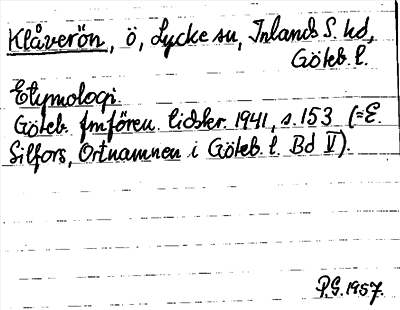 Klåverön, ö, Lycke sn, Inlands S. hd,
Göteb. l.
Etymologi.
Göteb. fmfören. tidskr. 1941, s. 153 (= E.
Silfors, Ortnamnen i Göteb. l. Bd V).
P.G. 1957.